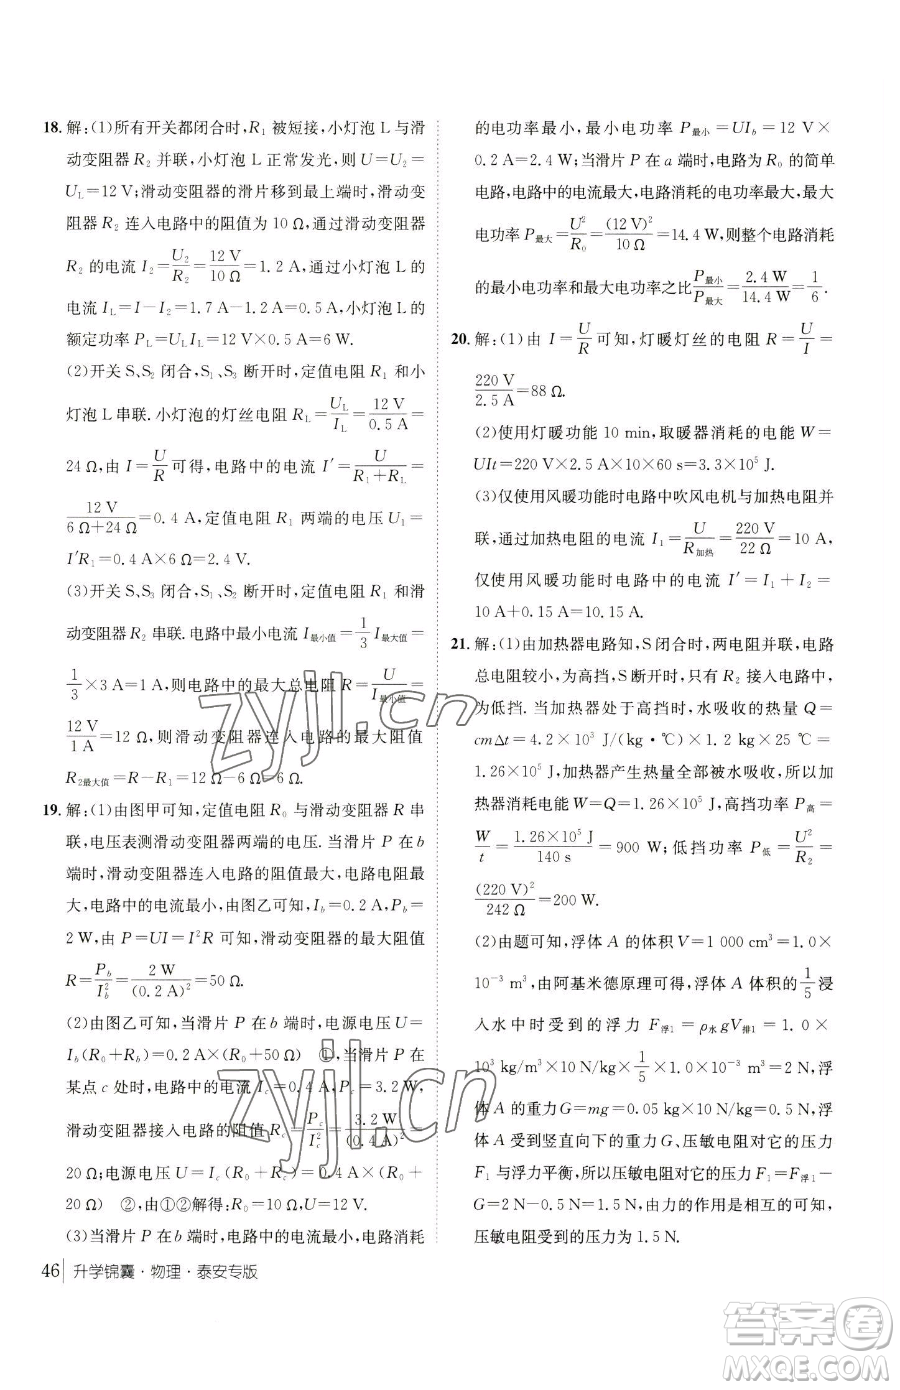 18. 解:(1)所有开关都闭合时,R₁ 被短接,小灯泡 L 与滑
动变阻器 R₂ 并联,小灯泡 L 正常发光,则 U=U₂=
U_L=12 V;滑动变阻器的滑片移到最上端时,滑动变
阻器 R₂ 连入电路中的阻值为 10 Ω,通过滑动变阻器
R₂ 的电流 I₂=U₂/R₂=12 V/10 Ω=1.2 A,通过小灯泡 L 的
电流 I_L=I-I₂=1.7 A-1.2 A=0.5 A,小灯泡 L 的
额定功率 P_L=U_L I_L=12 V×0.5 A=6 W.
(2)开关 S、S₂ 闭合,S₁、S₃ 断开时,定值电阻 R₁ 和小
灯泡 L 串联.小灯泡的灯丝电阻 R_L=U_L/I_L=12 V/0.5 A=
24 Ω,由 I=U/R可得,电路中的电流 I′=U/(R₁+R_L)=
12 V/(6 Ω+24 Ω)=0.4 A,定值电阻 R₁ 两端的电压 U₁=
I′R₁=0.4 A×6 Ω=2.4 V.
(3)开关 S、S₃ 闭合,S₁、S₂ 断开时,定值电阻 R₁ 与滑
动变阻器 R₂ 串联.电路中最小电流 I最小值=1/3 I最大值=
1/3×3 A=1 A,则电路中的最大总电阻 R=U/I最小值=
12 V/1 A=12 Ω,则滑动变阻器连入电路的最大阻值
R₂最大值=R-R₁=12 Ω-6 Ω=6 Ω.
19. 解:(1)由图甲可知,定值电阻 R₀ 与滑动变阻器 R 串
联,电压表测滑动变阻器两端的电压.当滑片 P 在 b
端时,滑动变阻器连入电路的阻值最大,总电阻最
大,电路中的电流最小,由图乙可知,I_b=0.2 A,P_b=
2 W,由 P=UI=I²R 可得,滑动变阻器的最大阻值
R=P_b/I_b²=2 W/(0.2 A)²=50 Ω.
(2)由图乙可知,当滑片 P 在 b 端时,电源电压 U=
I_b(R₀+R_b)=0.2 A×(R₀+50 Ω) ①,当滑片 P 在
某点 c 处时,电路中的电流 I_c=0.4 A,P_c=3.2 W,
滑动变阻器接入电路的阻值 R_c=P_c/I_c²=3.2 W/(0.4 A)²=
20 Ω;电源电压 U=I_c(R₀+R_c)=0.4 A×(R₀+
20 Ω) ②,由①②解得:R₀=10 Ω,U=12 V.
(3)当滑片 P 在 b 端时,电路中的电流最小,电路消耗
的电功率最小,最小电功率 P最小=UI_b=12 V×
0.2 A=2.4 W;当滑片 P 在 a 端时,电路为 R₀ 的简单
电路,电路中的电流最大,电路消耗的电功率最大,最大
电功率 P最大=U²/R₀=(12 V)²/10 Ω=14.4 W,则整个电路消耗
的最小电功率和最大电功率之比P最小/P最大=2.4 W/14.4 W=1/6.
20. 解:(1)由 I=U/R可知,灯暖灯丝的电阻 R=U/I=
220 V/2.5 A=88 Ω.
(2)使用灯暖功能 10 min,取暖器消耗的电能 W=
UIt=220 V×2.5 A×10×60 s=3.3×10⁵ J.
(3)仅使用风暖功能时电路中吹风电机与加热电阻并
联,通过加热电阻的电流 I₁=U/R加热=220 V/22 Ω=10 A,
仅使用风暖功能时电路中的电流 I′=I₁+I₂=
10 A+0.15 A=10.15 A.
21. 解:(1)由加热器电路知,S 闭合时,两电阻并联,电路
总电阻较小,为高挡,S 断开时,只有 R₂ 接入电路中,
为低挡.当加热器处于高挡时,水吸收的热量 Q=
cmΔt=4.2×10³ J/(kg·℃)×1.2 kg×25 ℃=
1.26×10⁵ J,加热器产生热量全部被水吸收,所以
加热器消耗电能 W=Q=1.26×10⁵ J,高挡功率 P高=
W/t=1.26×10⁵ J/140 s=900 W;低挡功率 P低=U²/R₂=
(220 V)²/242 Ω=200 W.
(2)由题可知,浮体 A 的体积 V=1 000 cm³=1.0×
10⁻³ m³,由阿基米德原理可得,浮体 A 体积的1/5浸
入水中时受到的浮力 F浮1=ρ水gV排1=1.0×
10³ kg/m³×10 N/kg×1/5×1.0×10⁻³ m³=2 N,浮
体 A 的重力 G=mg=0.05 kg×10 N/kg=0.5 N,浮
体 A 受到竖直向下的重力 G、压敏电阻对它的压力
F₁ 与浮力平衡,所以压敏电阻对它的压力 F₁=F浮1-
G=2 N-0.5 N=1.5 N,由力的作用是相互的可知,
压敏电阻受到的压力为 1.5 N.
46 升学锦囊·物理·泰安专版
zyjl.cn
zyjl.cn
答案圈
MXQE.COM